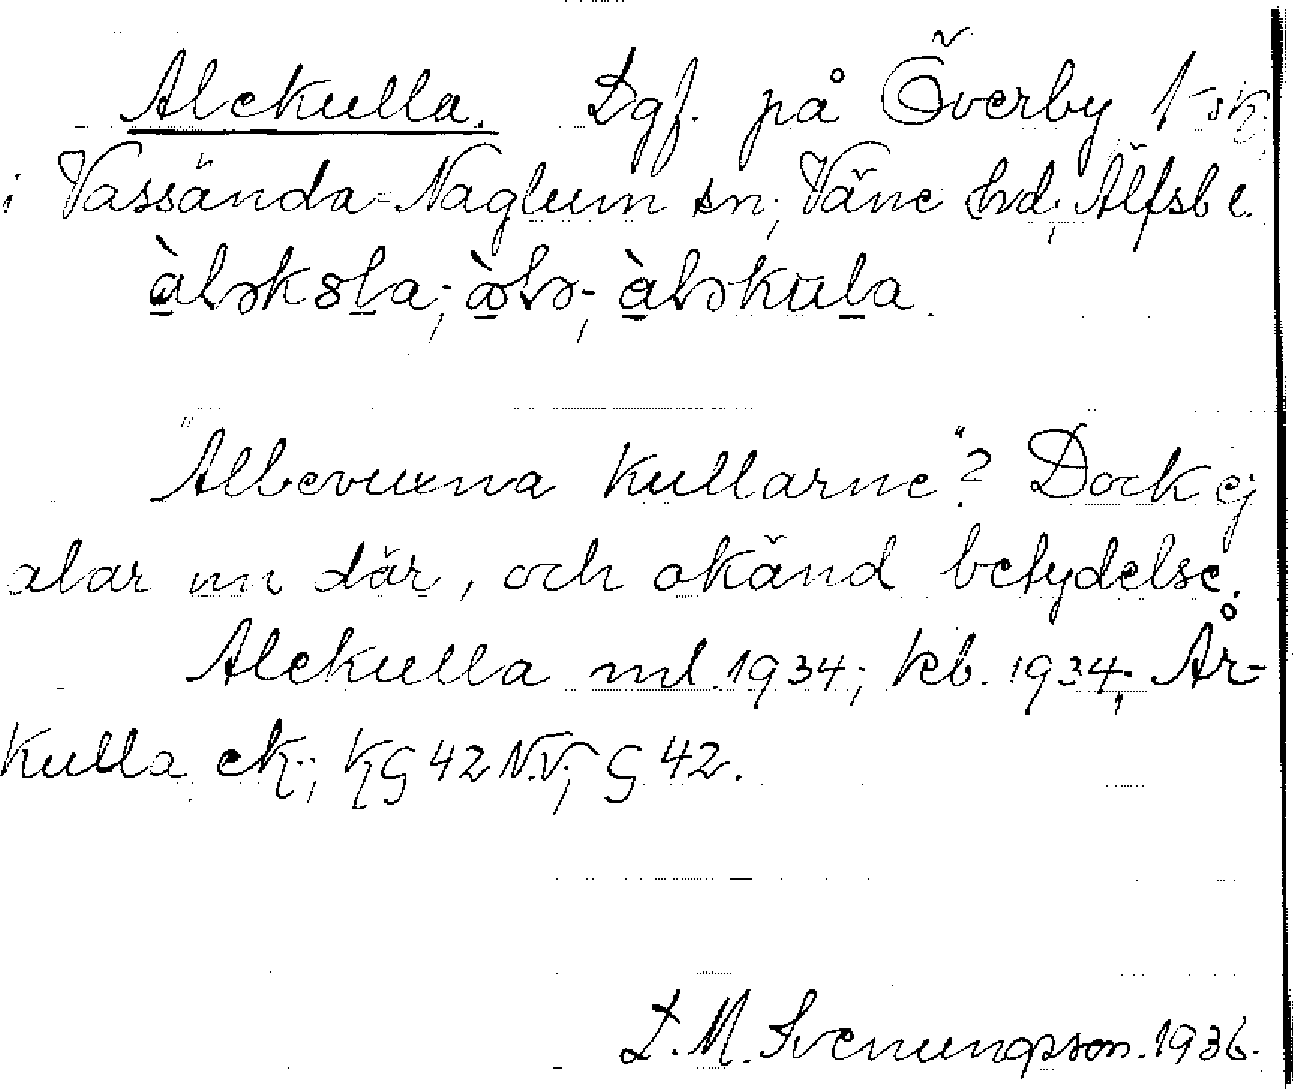 Alekulla. Lgf. på Överby 1-sk.
i Vassända-Naglum sn, Väne hd, Älfsb l.
"Albevuxna kullarne"? Dock ej
alar nu där, och okänd betydelse.
Alekulla ml. 1934; kb. 1934; År-
kulla ek; KG 42 N.V; G 42.
L. M. Svenungsson. 1936.